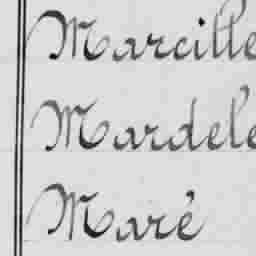 Marcille
Mardelé
Maré